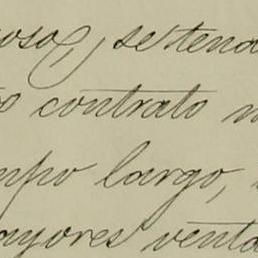 osos, setenta
contrato
mpo largo,
ayores venta